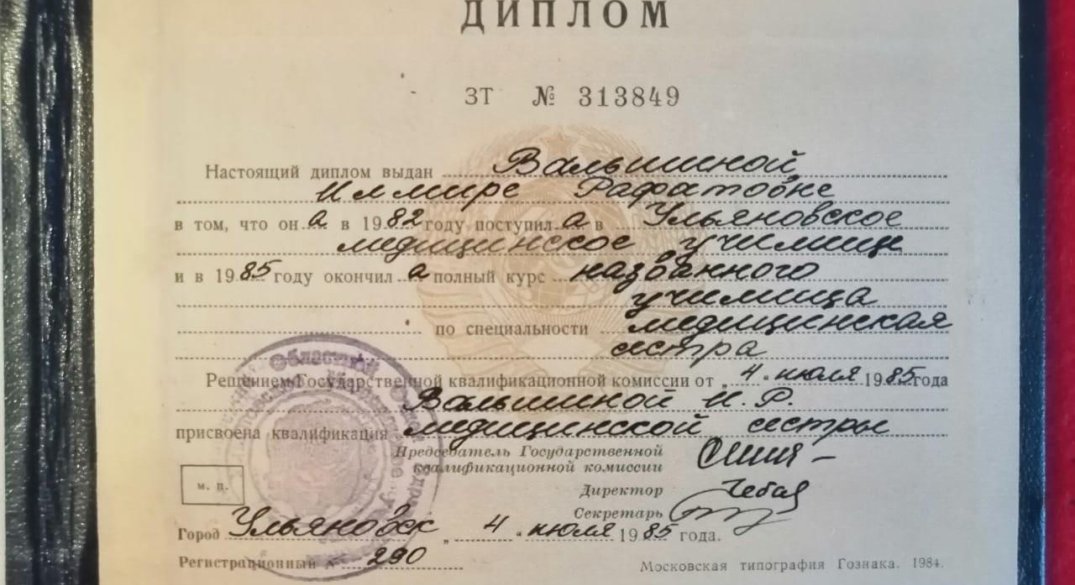 ДИПЛОМ
ЗТ № 313849
Настоящий диплом выдан Вальшиной,
Илмире Рафатовне
в том, что он а в 1982 году поступил а в Ульяновское
медицинское училище
и в 1985 году окончил а полный курс названного
училища
по специальности медицинская
сестра
Решением Государственной квалификационной комиссии от „4“ июля 1985 года
Вальшиной И.Р.
присвоена квалификация медицинской сестры
Председатель Государственной
квалификационной комиссии
Директор
Секретарь
м. п.
Город Ульяновск „4“ июля 1985 года.
Регистрационный № 290
Московская типография Гознака. 1984.
Областной